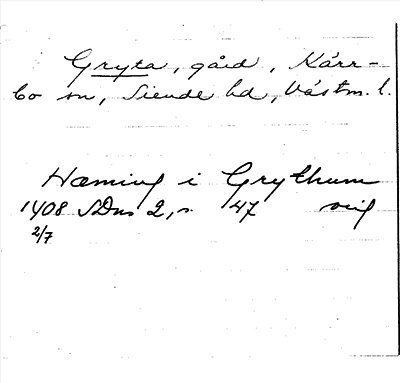 Gryta, gård, Kärr-
bo sn, Siende hd, Västm. l.
Hæming i Grythum
1408 SDns 2, s. 47 orig
2/7